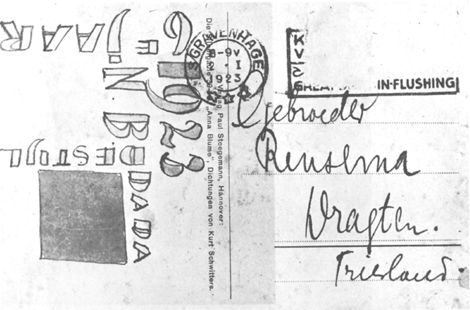 JAAR
1923
B
DESTIJL
DADA
Verlag Paul Steegemann, Hannover:
„Anna Blume", Dichtungen von Kurt Schwitters.
'S GRAVENHAGE
8-9V
I
1923
KV
IN-FLUSHING
Gebroeder
Rensema
Dragten.
Friesland.